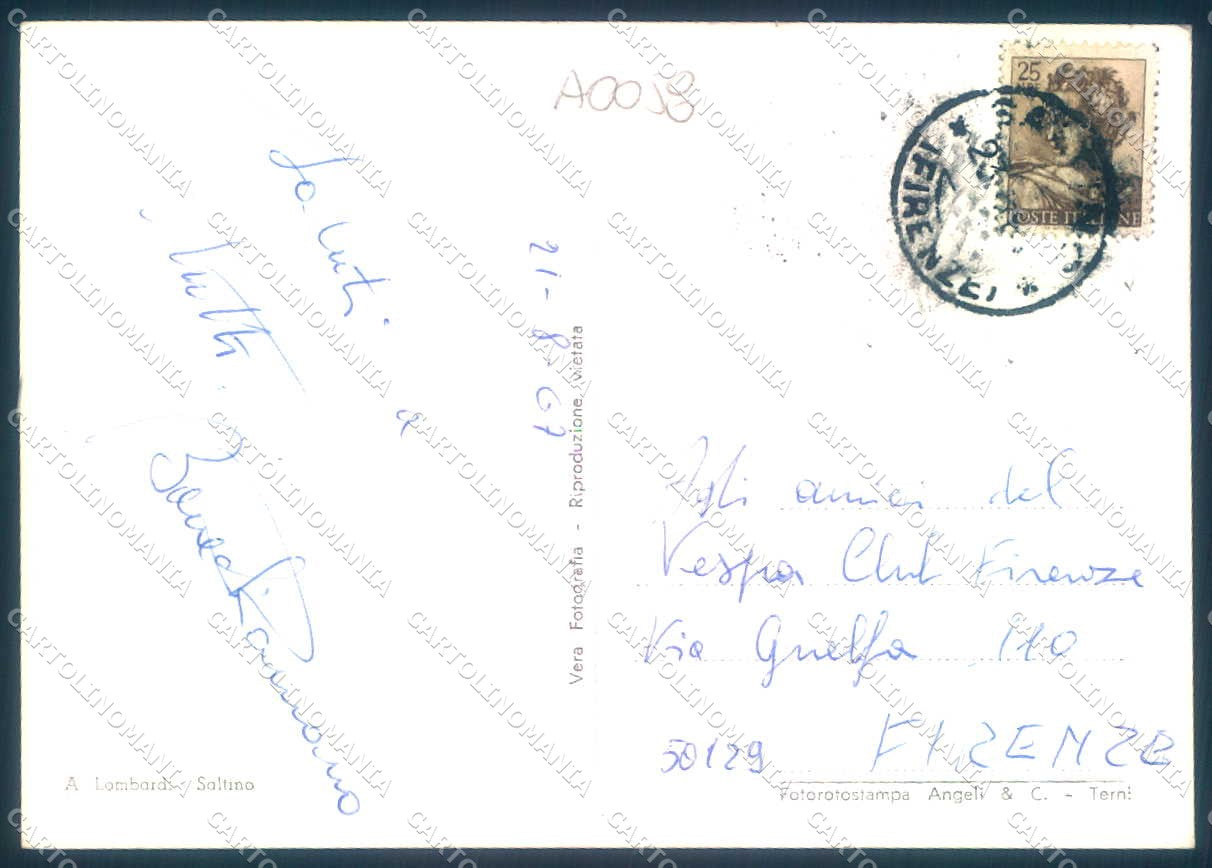 A0098
25
POSTE ITALIANE
FIRENZE
Saluti a
tutti
21-8-67
Vera Fotografia - Riproduzione vietata
Agli amici del
Vespa Club Firenze
Via Guelfa 110
50129 FIRENZE
A Lombardi - Saltino
Fotorotostampa Angeli & C. - Terni
CARTOLINOMANIA